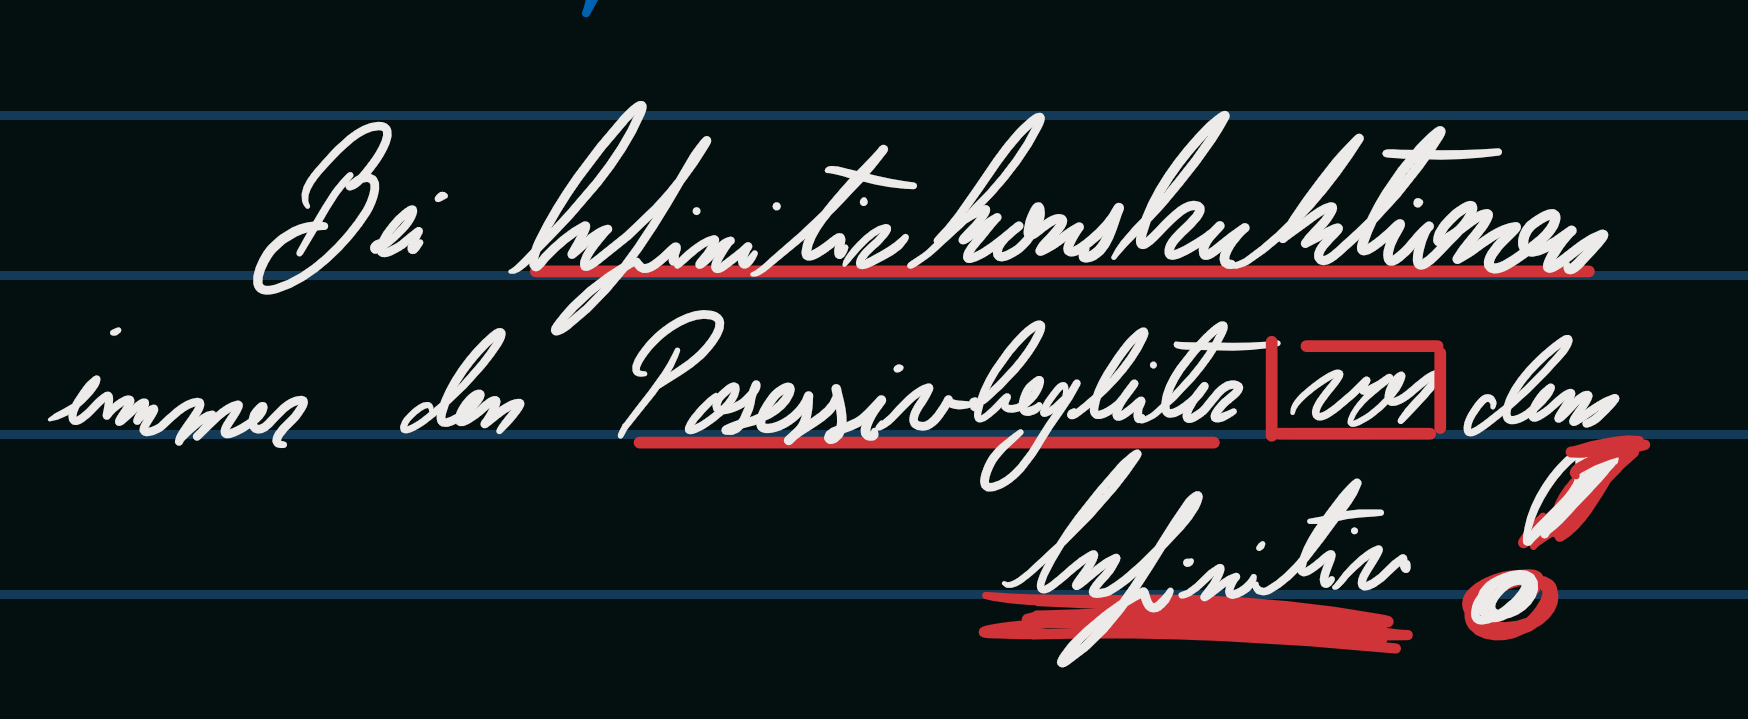 Bei Infinitivkonstruktionen
immer den Posessivbegleiter vor dem
Infinitiv!